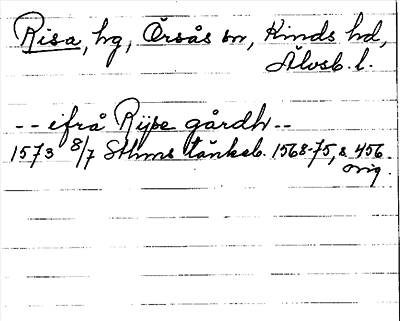 Risa, hg, Örsås sn, Kinds hd,
Älvsb. l.
-- ifrå Rijse gårdh --
1573 8/7 Sthms tänkeb. 1568-75, s 456.
orig.